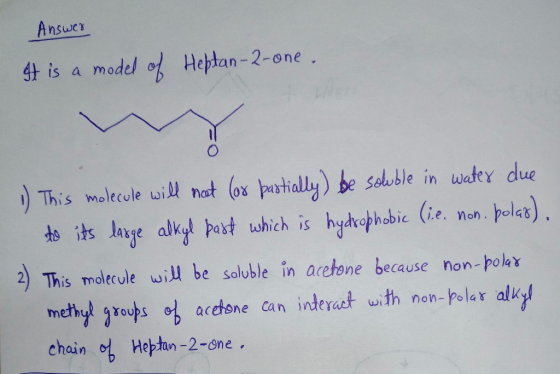 Answer
It is a model of Heptan-2-one.
O
1) This molecule will not (or partially) be soluble in water due
to its large alkyl part which is hydrophobic (i.e. non.polar).
2) This molecule will be soluble in acetone because non-polar
methyl groups of acetone can interact with non-polar alkyl
chain of Heptan-2-one.